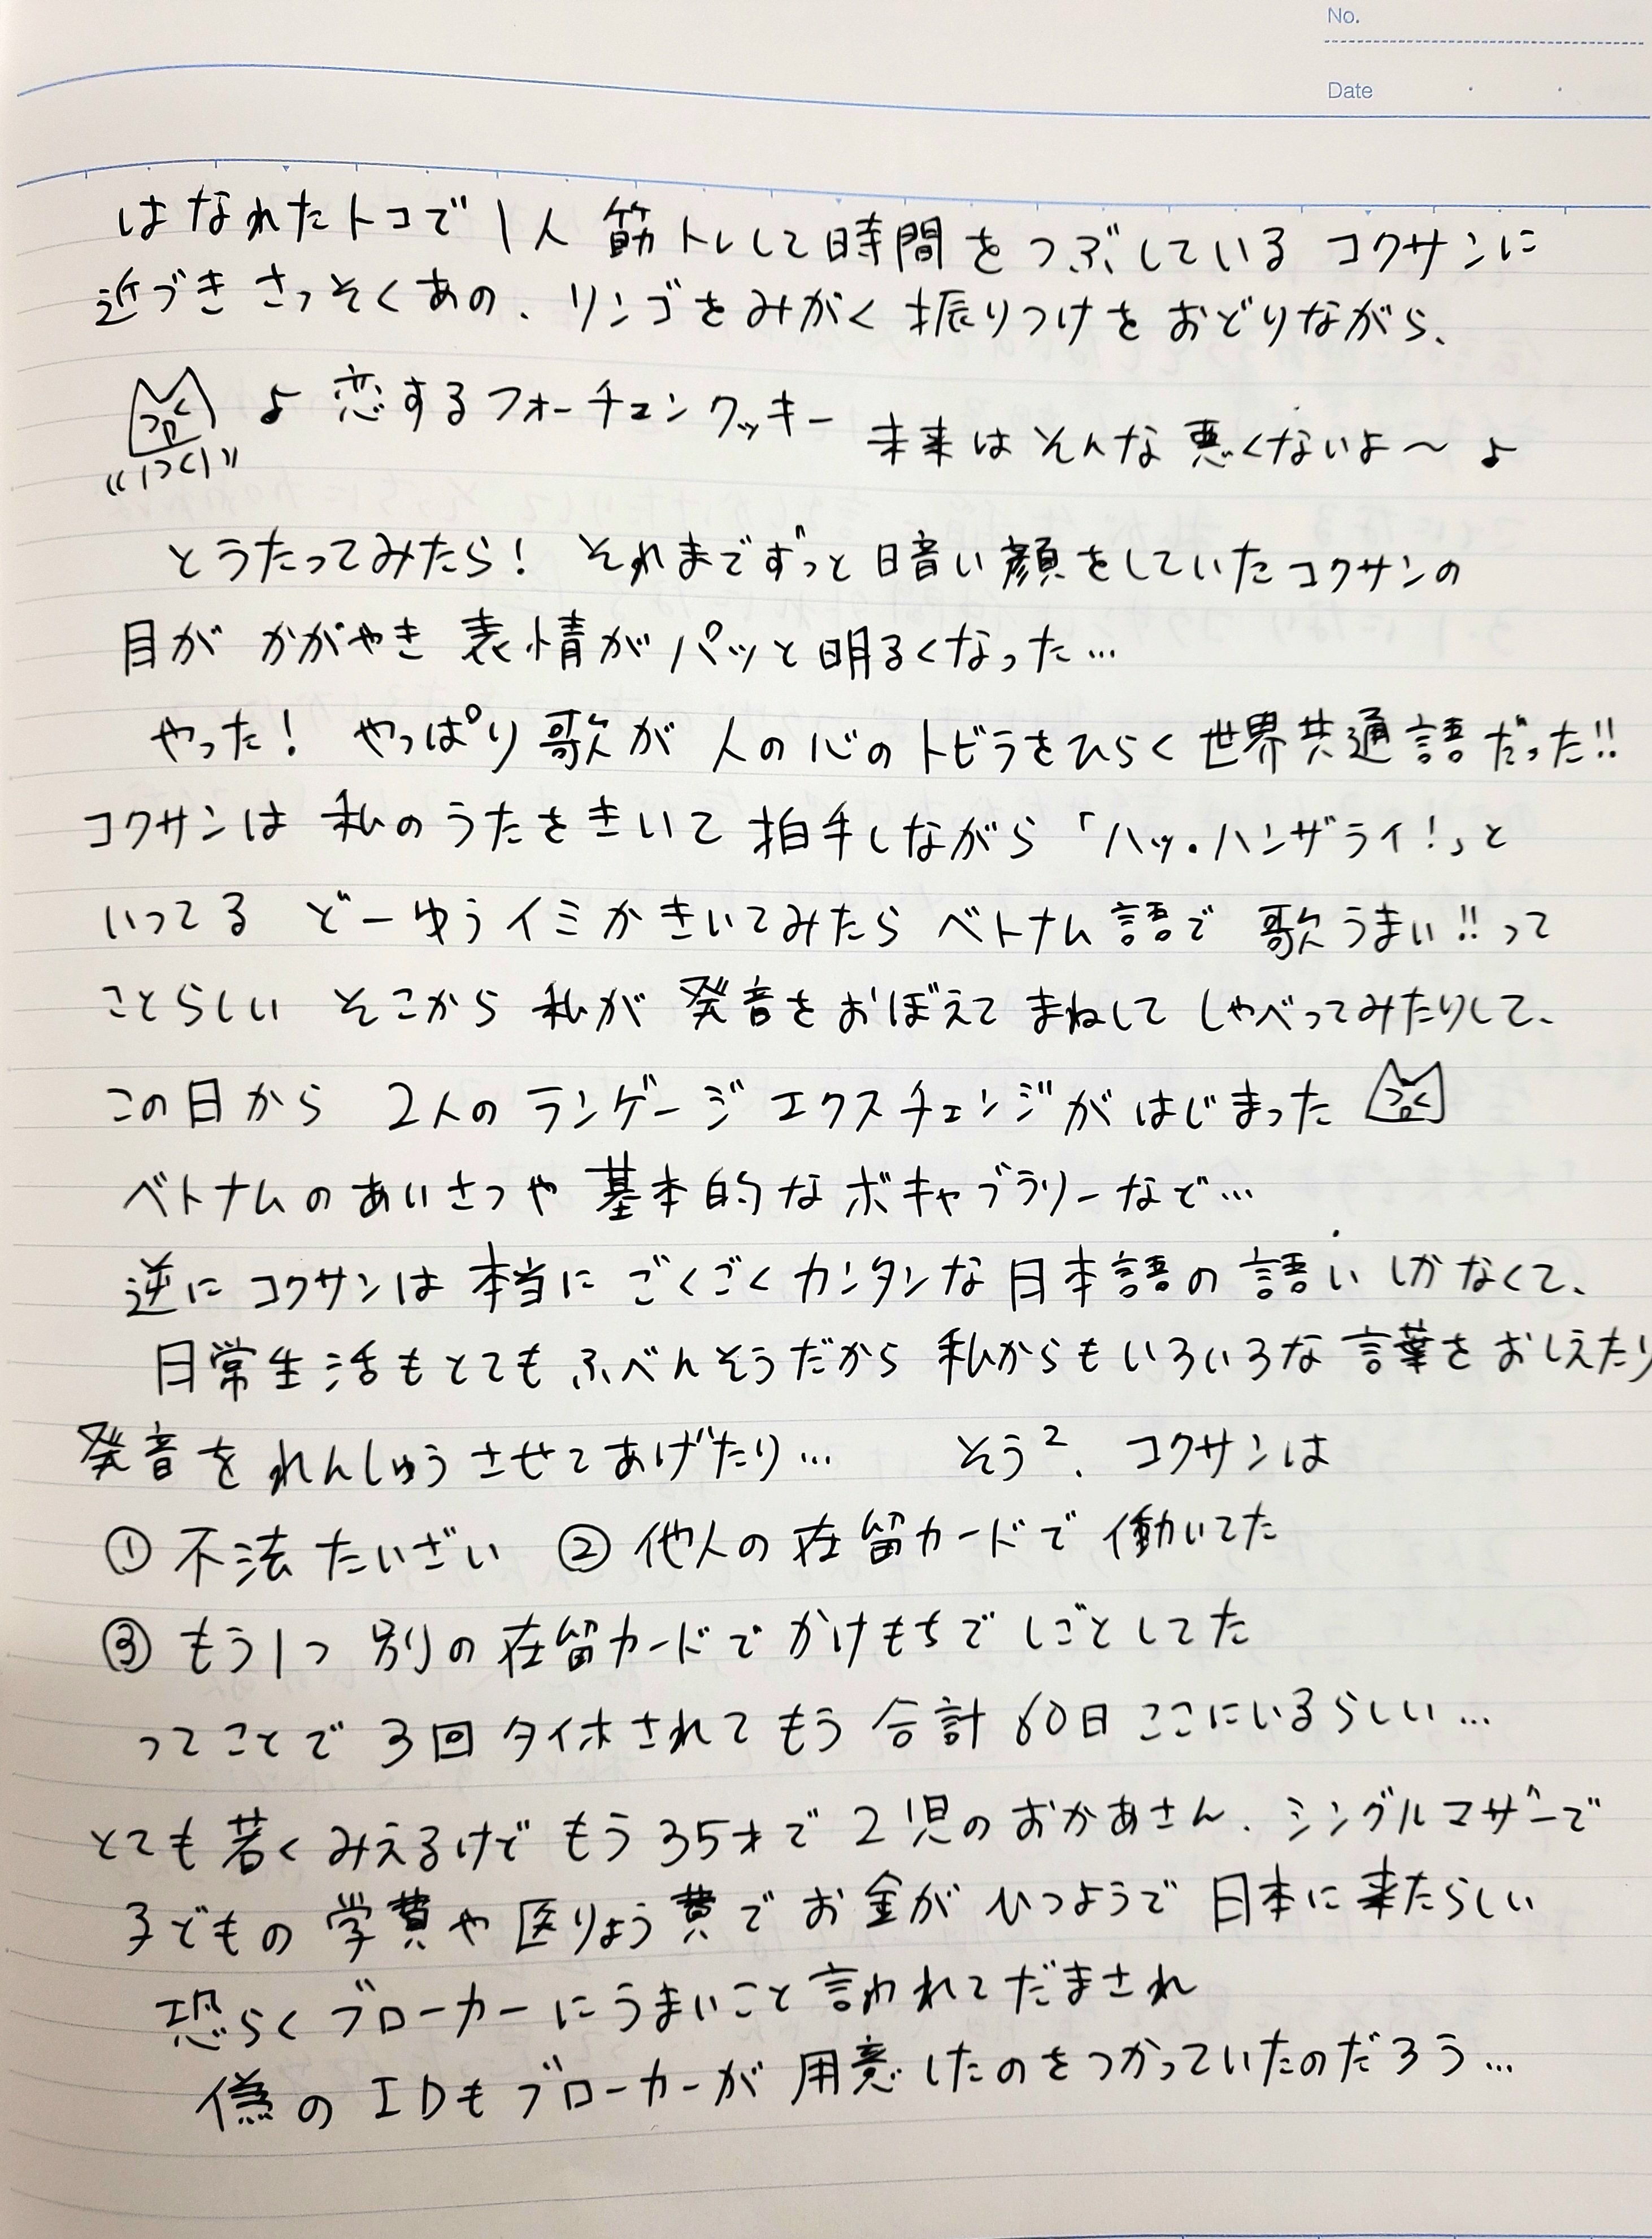 No.
Date
はなれたトコで1人 筋トレして時間をつぶしている コクサンに
近づき さっそくあの、リンゴをみがく 振りつけを おどりながら、
♪ 恋するフォーチュンクッキー 未来は そんな 悪くないよ〜 ♪
とうたってみたら! それまでずっと 暗い顔をしていたコクサンの
目が かがやき 表情がパッと明るくなった…
やった! やっぱり 歌が 人の心のトビラをひらく 世界共通語だった!!
コクサンは 私のうたをきいて 拍手しながら 「ハッ・ハンザライ!」と
いってる どーゆうイミかきいてみたら ベトナム語で 歌うまい!!って
ことらしい そこから 私が 発音をおぼえて まねして しゃべってみたりして、
この日から 2人のランゲージ エクスチェンジが はじまった
ベトナムの あいさつや 基本的な ボキャブラリーなど…
逆に コクサンは 本当に ごくごく カンタンな 日本語の 語い しかなくて、
日常生活もとても ふべんそうだから 私からも いろいろな 言葉を おしえたり
発音を れんしゅうさせてあげたり… そう²、コクサンは
① 不法たいざい ② 他人の 在留カードで 働いてた
③ もう1つ 別の在留カードで かけもちで しごとしてた
ってことで 3回 タイホされて もう 合計 60日 ここにいるらしい…
とても 若く みえるけど もう 35才で 2児の おかあさん、シングルマザーで
子どもの 学費や 医りょう費で お金が ひつようで 日本に来たらしい
恐らく ブローカーに うまいこと 言われて だまされ
偽の IDも ブローカーが 用意したのを つかっていたのだろう…